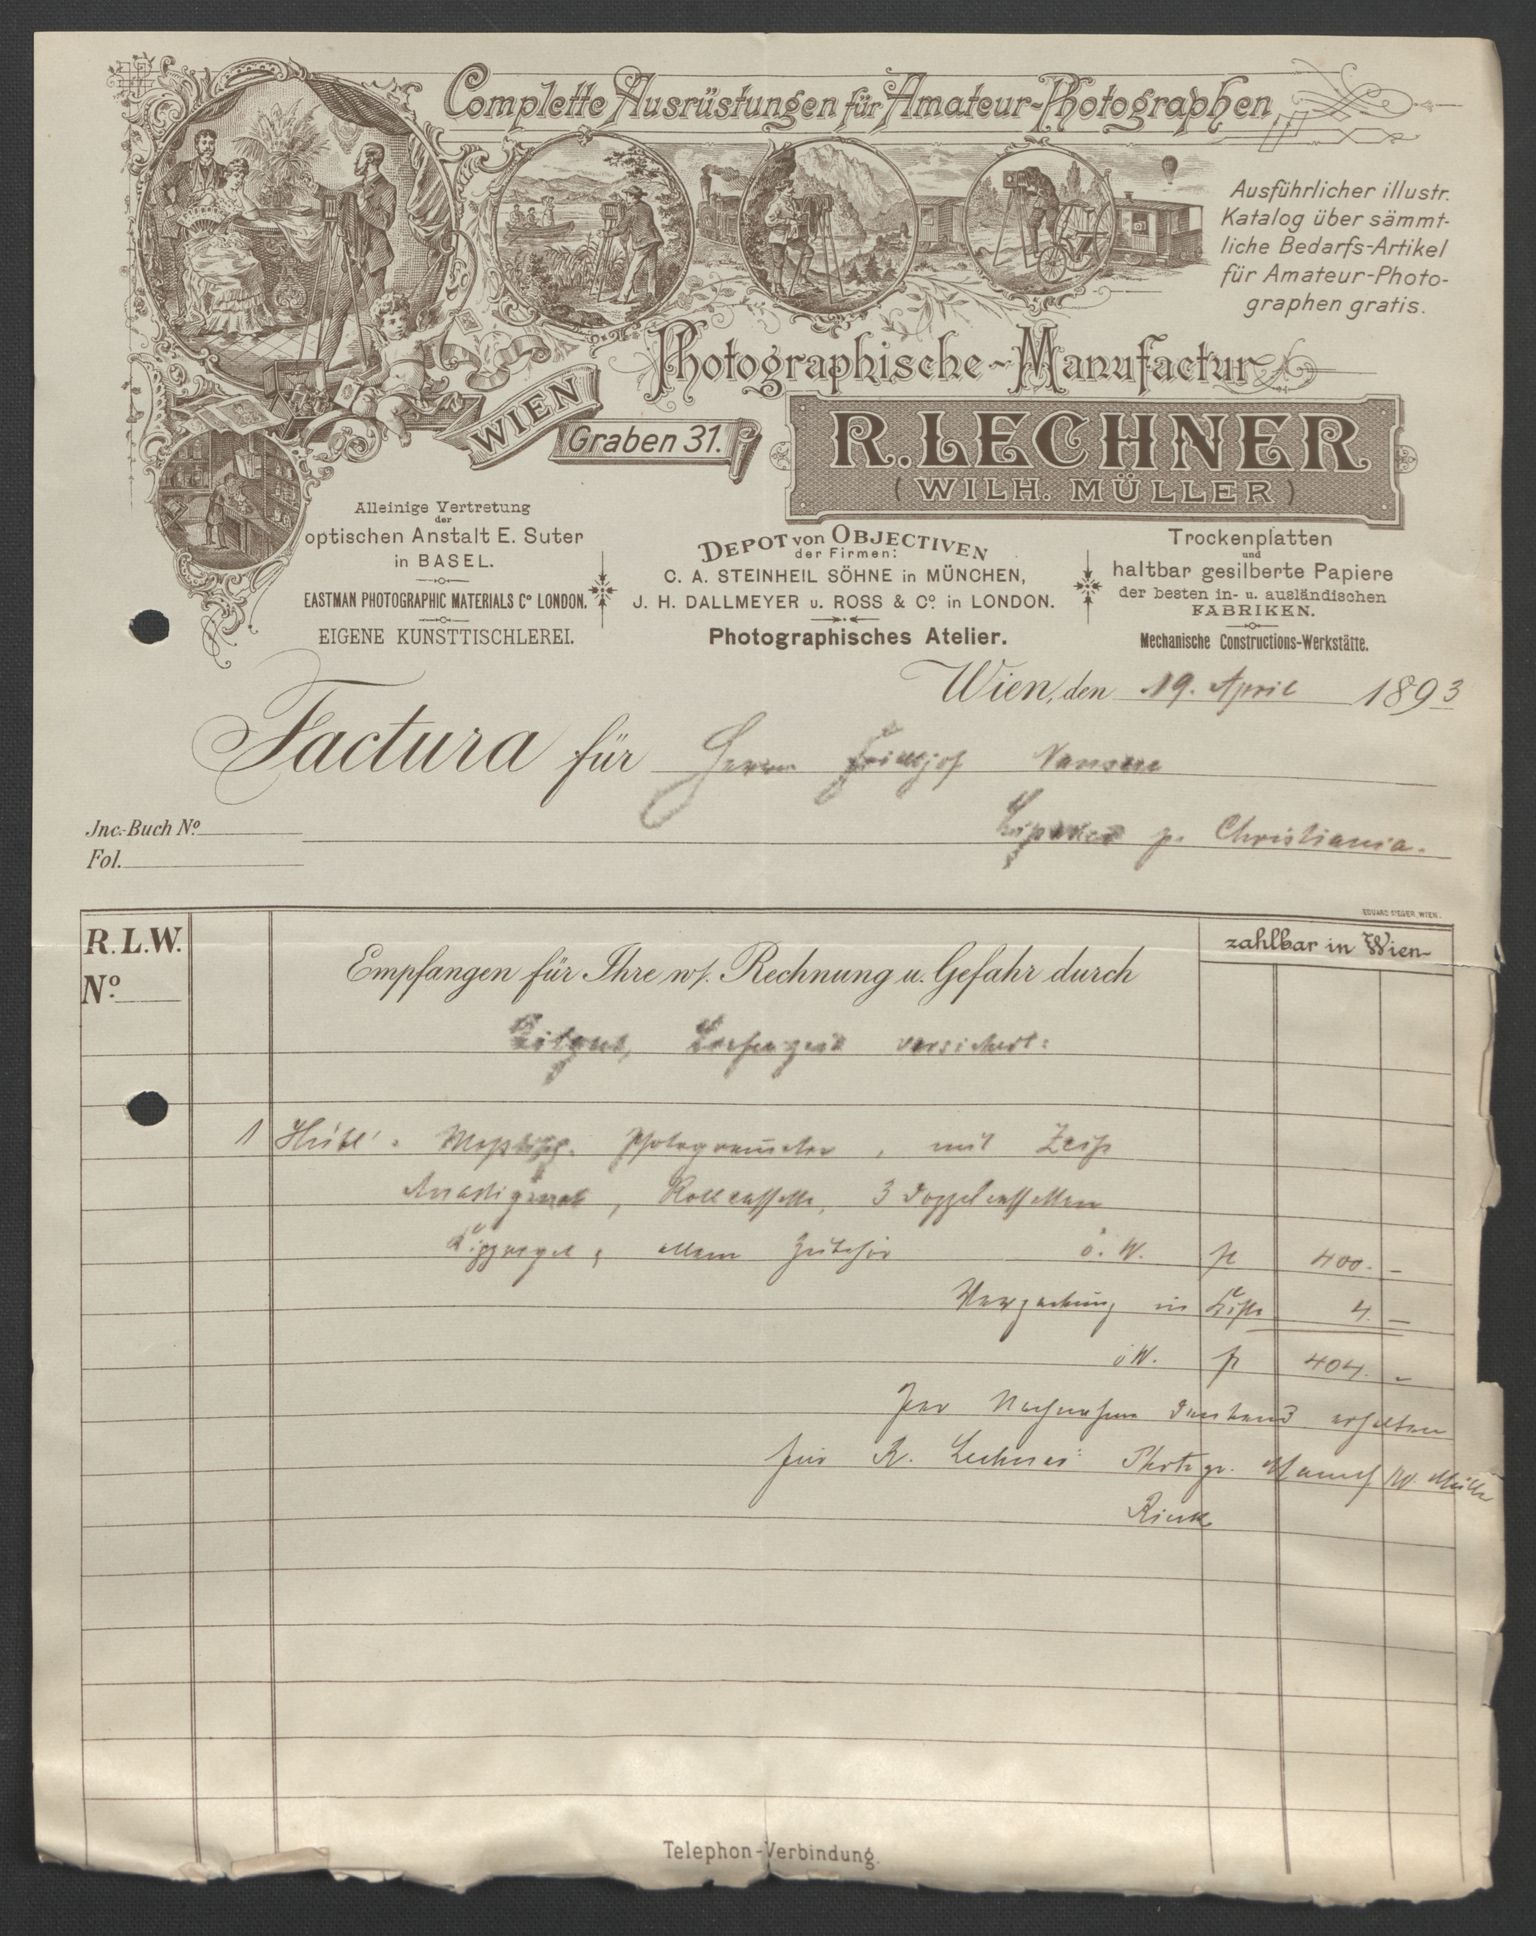 Complette Ausrüstungen für Amateur-Photographen
Ausführlicher illustr.
Katalog über sämmt-
liche Bedarfs-Artikel
für Amateur-Photo-
graphen gratis.
Photographische-Manufactur
WIEN
Graben 31.
R. LECHNER
(WILH. MÜLLER)
Alleinige Vertretung
der
optischen Anstalt E. Suter
in BASEL.
EASTMAN PHOTOGRAPHIC MATERIALS Co LONDON.
EIGENE KUNSTTISCHLEREI.
DEPOT von OBJECTIVEN
der Firmen:
C. A. STEINHEIL SÖHNE in MÜNCHEN,
J. H. DALLMEYER u. ROSS & Co. in LONDON.
Photographisches Atelier.
Trockenplatten
und
haltbar gesilberte Papiere
der besten in- u. ausländischen
FABRIKEN.
Mechanische Constructions-Werkstätte.
Wien, den 19. April 1893
Factura für Herrn Fridtjof Nansen
Jnc.-Buch No
p. Christiania.
Fol.
EDUARD SIEGER, WIEN.
R. L. W.
No.
zahlbar in Wien
Empfangen für Ihre w/. Rechnung u. Gefahr durch
Eilgut, versichert:
1 Photogrammeter, mit Zeiß
Anastigmat, Rollcassette, 3 Doppelcassetten
allem Zubehör ö. W. fl 400.-
Verpackung in Kiste 4.-
ö W. fl 404.-
per Nachnahme dankend erhalten
für R. Lechner's Photogr. Manuf W. Müller
Telephon-Verbindung.